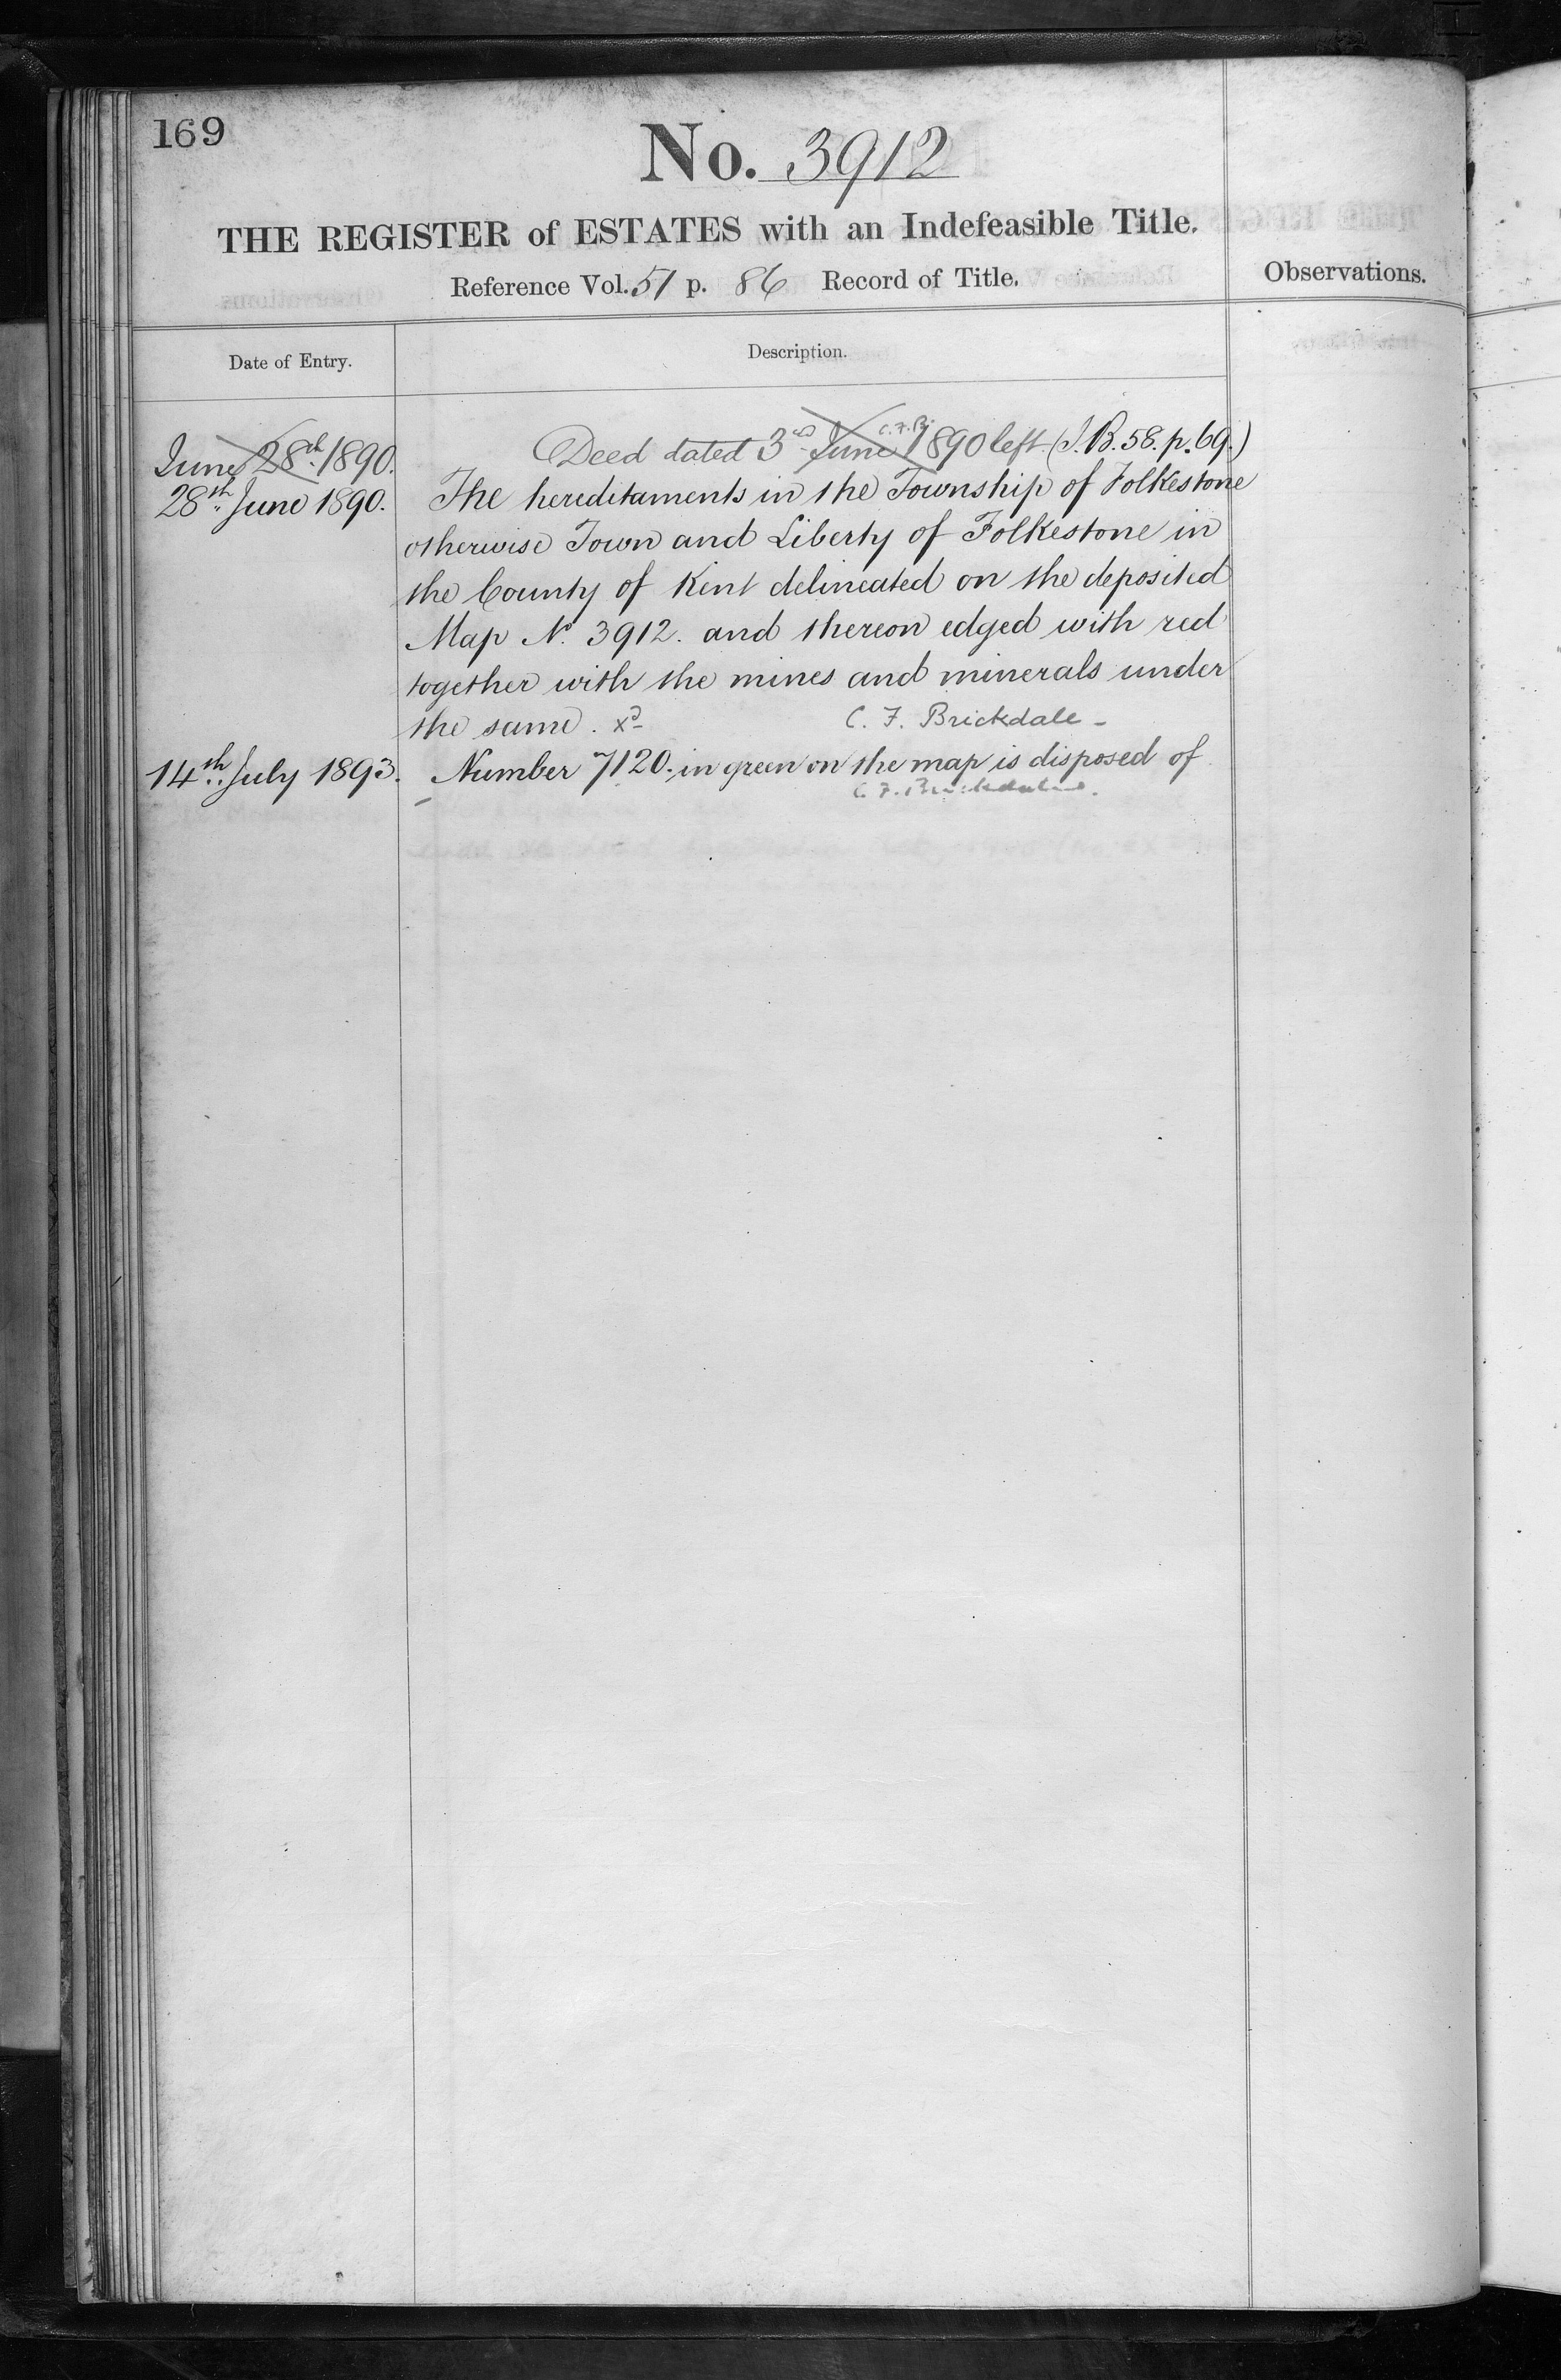 169
No. 3912
THE REGISTER of ESTATES with an Indefeasible Title.
Reference Vol. 51 p. 86 Record of Title.
Observations.
Date of Entry.
Description.
June 28th 1890.
Deed dated 3rd June 1890 left (I.B. 58. p. 69.)
C.F.B.
28th June 1890.
The hereditaments in the Township of Folkestone
otherwise Town and Liberty of Folkestone in
the County of Kent delineated on the deposited
Map No. 3912. and thereon edged with red
together with the mines and minerals under
the same. xd C. F. Brickdale -
14th July 1893.
Number 7120. in green on the map is disposed of
C. F. Brickdale.